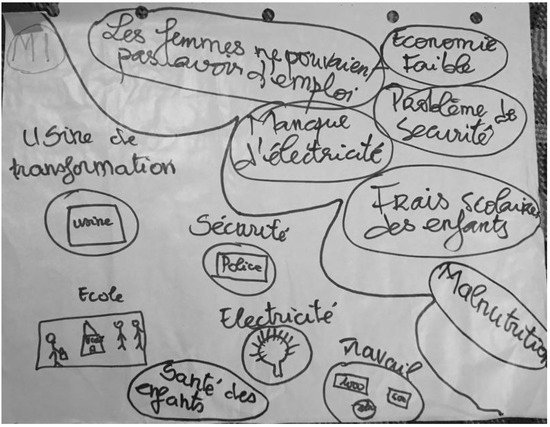 M1
Les femmes ne pouvaient
pas avoir d'emploi
Economie
Faible
Problème de
Sécurité
Manque
d'électricité
Frais scolaires
des enfants
Malnutrition
Usine de
transformation
usine
Sécurité
Police
Ecole
Electricité
Travail
Santé des
enfants